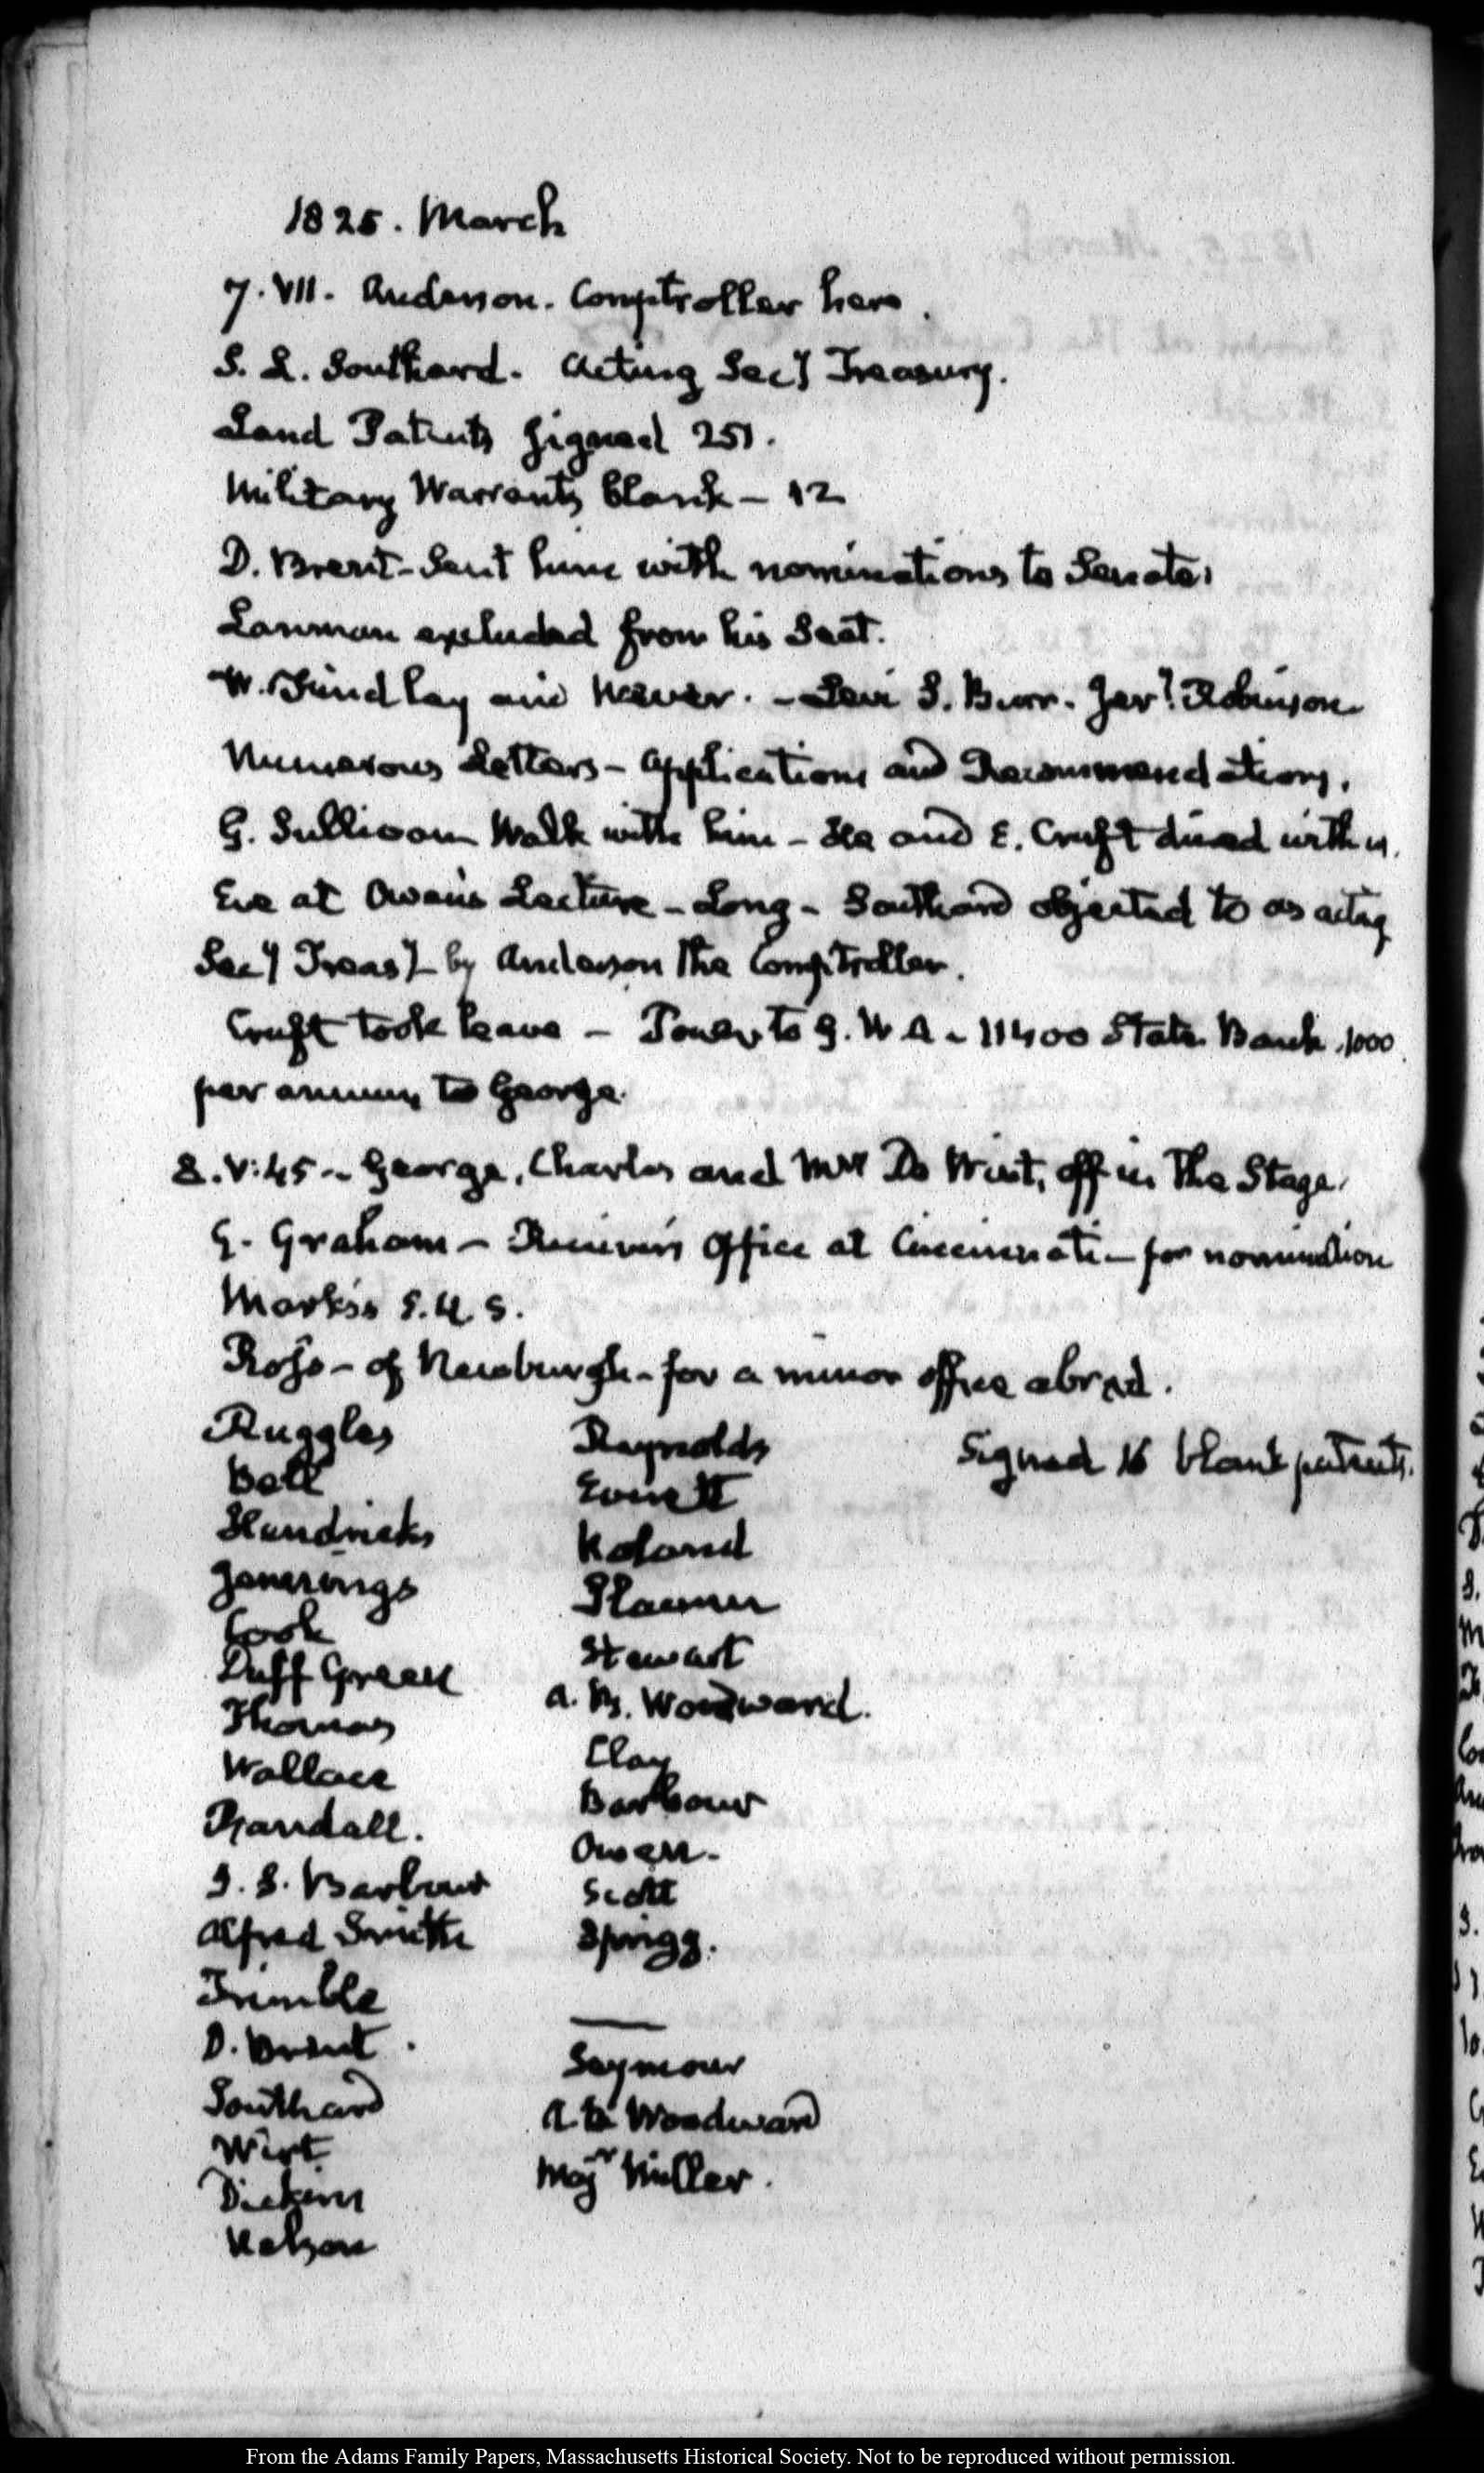 1825. March
7. VII. Anderson. Comptroller here.
S. L. Southard. Acting Secy Treasury.
Land Patents signed 251.
Military Warrants blank — 12
D. Brent - Sent him with nominations to Senate.
Lanman excluded from his Seat.
W. Findlay and — Levi S. Burr. Jerh. Robinson
Numerous Letters — Applications and Recommendations.
G. Sullivan Walk with him — He and E. Cruft dined with us.
Eve at Owen's Lecture — Long — Southard objected to as acting
Secy Treasy — by Anderson the Comptroller.
Cruft took leave — Power to G. W A — 11400 State Bank, 1000
per annum to George.
8. V:45 — George, Charles and Mrs De Wint, off in the Stage.
G. Graham — Receiver's Office at Cincinnati — for nomination
Marks's S. U. S.
Ross — of Newburgh — for a minor office abroad.
Ruggles Reynolds Signed 16 blank patents.
Ball Everett
Hendricks Roland
Jennings Plumer
Cook Stewart
Duff Green A. B. Woodward.
Thomas Clay
Wallace Barbour
Randall. Owen.
J. S. Barbour Scott
Alfred Smith Sprigg.
Trimble
D. Brent.
Southard Seymour
Wirt A. B. Woodward
Dickins Majr Miller.
Nelson
From the Adams Family Papers, Massachusetts Historical Society. Not to be reproduced without permission.